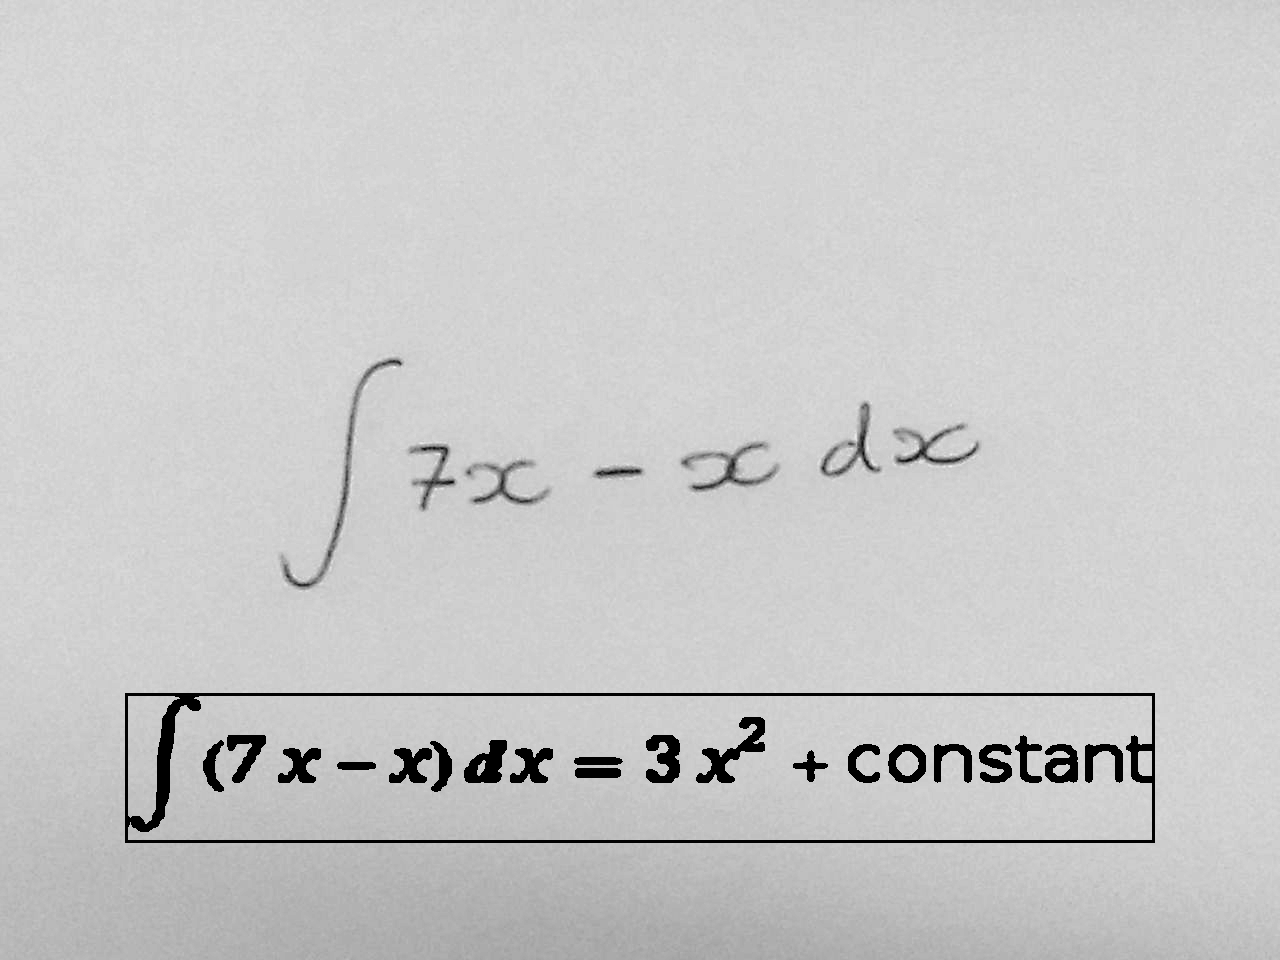 ∫ 7x − x dx
∫(7 x − x) dx = 3 x² + constant